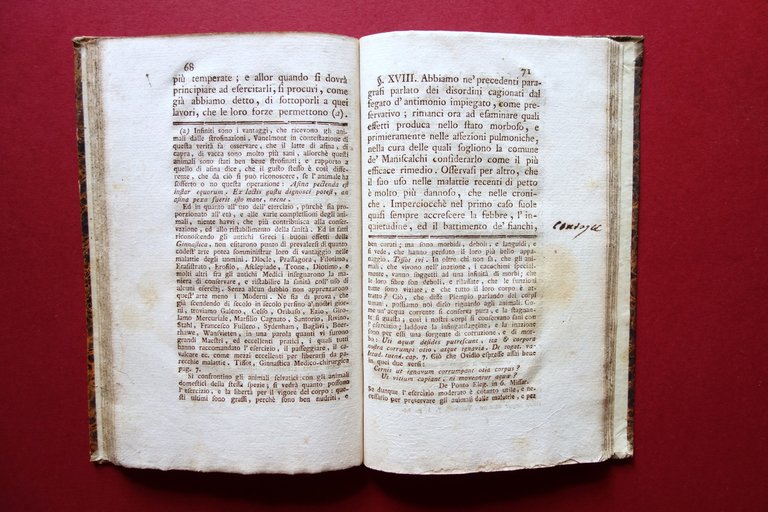 68
più temperate; e allor quando ſi dovrà
principiare ad eſercitarli, ſi procuri, come
già abbiamo detto, di ſottoporli a quei
lavori, che le loro forze permettono (a).
(a) Infiniti ſono i vantaggi, che ricevono gli ani-
mali dalle ſtrofinazioni. Vanelmont in conteſtazione di
queſta verità fa oſſervare, che il latte di aſina, di
capra, di vacca ſono molto più ſani, allorchè queſti
animali ſono ſtati ben bene ſtrofinati; e rapporto a
quello di aſina dice, che il guſto ſteſſo è così diffe-
rente, che da ciò ſi può riconoſcere, ſe l'animale ha
ſofferto o no queſta operazione: Aſina pectenda eſt
inſtar equorum. Ex lactis guſtu dignoſci poteſt, an
aſina pexa fuerit iſto mane, necne.
Ed in quanto all'uſo dell'eſercizio, purchè ſia pro-
porzionato all'età, e alle varie compleſſioni degli ani-
mali, niente havvi, che più contribuiſca alla conſer-
vazione, ed allo riſtabilimento della ſanità. Ed in fatti
riconoſcendo gli antichi Greci i buoni effetti della
Ginnaſtica, non eſitarono punto di prevalerſi di quanto
codeſt'arte potea ſomminiſtrar loro di vantaggio nelle
malattie degli uomini. Diocle, Praſſagora, Filotimo,
Eraſiſtrato, Erofilo, Aſclepiade, Teone, Diotimo, e
molti altri fra gli antichi Medici inſegnarono la ma-
niera di conſervare, e riſtabilire la ſanità coll'uſo di
alcuni eſercizj. Senza alcun dubbio non apprezzarono
queſt'arte meno i Moderni. Ne fia di prova, che
già ſcendendo di ſecolo in ſecolo perſino a' noſtri gior-
ni, troviamo Galeno, Celſo, Oribaſio, Ezio, Giro-
lamo Mercuriale, Marſilio Cagnato, Santorio, Rivino,
Stahl, Franceſco Fullero, Sydenham, Baglivi, Boer-
rhawe, Wanſvieten, in una parola quanti vi furono
grandi Maeſtri, ed eccellenti pratici, i quali tutti
hanno raccomandato l'eſercizio, il paſſeggiare, il ca-
valcare ec. come mezzi eccellenti per liberarſi da pa-
recchie malattie. Tiſſot, Ginnaſtica Medico-chirurgica
pag. 7.
Si confrontino gli animali ſelvatici con gli animali
domeſtici della ſteſſa ſpezie; ſi vedrà quanto poſſono
l'eſercizio, e la libertà per il vigore del corpo: que-
ſti ultimi ſono graſſi, perchè ſono ben nudriti, e
71
§. XVIII. Abbiamo ne' precedenti para-
grafi parlato dei diſordini cagionati dal
fegato d'antimonio impiegato, come pre-
ſervativo; rimanci ora ad eſaminare quali
effetti produca nello ſtato morboſo, e
primieramente nelle affezioni pulmoniche,
nella cura delle quali ſogliono la comune
de' Maniſcalchi conſiderarlo come il più
efficace rimedio. Oſſervaſi per altro, che
il ſuo uſo nelle malattie recenti di petto
è molto più dannoſo, che nelle croni-
che. Imperciocchè nel primo caſo ſuole
quaſi ſempre accreſcere la febbre, l'in-
quietudine, ed il battimento de' fianchi,
ben curati; ma ſono morbidi, deboli, e languidi, e
ſi vede, che hanno perduto il loro più bello appa-
naggio. Tiſſot ivi. In oltre chi non ſa, che gli ani-
mali, che vivono nell'inazione, i cacochimi ſpecial-
mente, vanno ſoggetti ad una infinità di morbi; che
le loro fibre ſon deboli, e rilaſſate, che le funzioni
ne ſono viziate, e che tutto il loro corpo è di-
ſtratto? Ciò, che diſſe Plempio parlando dei corpi
umani, poſſiamo noi dirlo riguardo agli animali. Co-
me un'acqua corrente ſi conſerva pura, e la ſtagnan-
te ſi guaſta, così i noſtri corpi ſi conſervano ſani con
l'eſercizio; laddove la infingardaggine, e la inazione
ſono per eſſi una ſorgente di corruzione, e di mor-
bo: Uti aquæ deſides putreſcunt, ita & corpora
noſtra corrumpi otio, atque ignavia. De togat. va-
letud. tuend. cap. 7. Ciò che Ovidio eſpreſſe aſſai bene
in quei due verſi:
Cernis ut ignavum corrumpant otia corpus?
Ut vitium capiant, ni moveantur aquæ?
De Ponto Eleg. in 6. Miſſar.
Se dunque l'eſercizio moderato è cotanto utile, e ne-
ceſſario per preſervare gli animali dalle malattie, e per